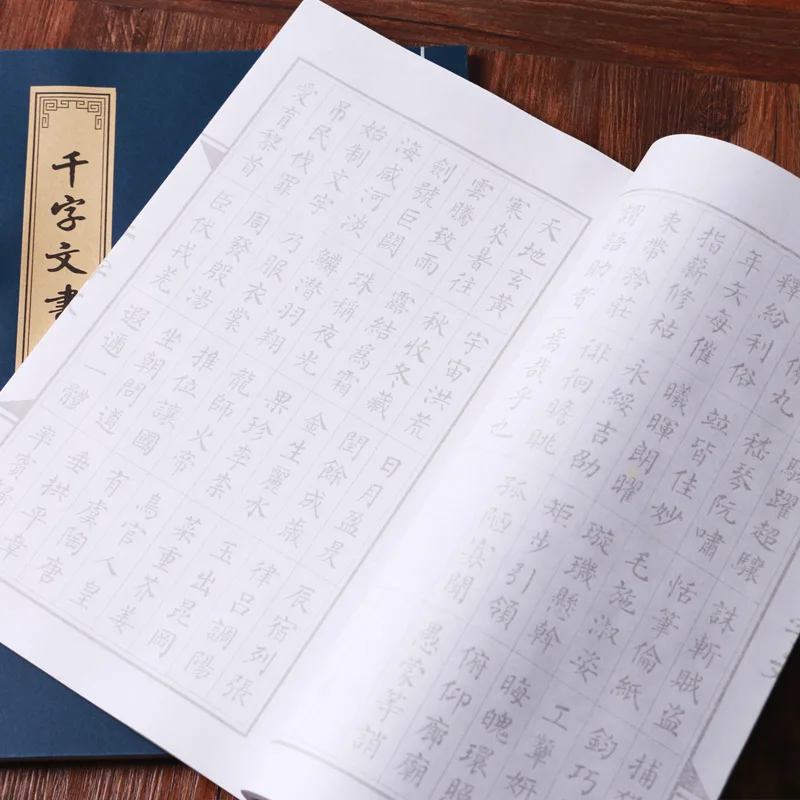 千字文書
天地玄黃 宇宙洪荒 日月盈昃 辰宿列張
寒來暑往 秋收冬藏 閏餘成歲 律呂調陽
雲騰致雨 露結爲霜 金生麗水 玉出昆岡
劍號巨闕 珠稱夜光 果珍李柰 菜重芥姜
海咸河淡 鱗潛羽翔 龍師火帝 鳥官人皇
始制文字 乃服衣裳 推位讓國 有虞陶唐
吊民伐罪 周發殷湯 坐朝問道 垂拱平章
愛育黎首 臣伏戎羌 遐邇一體 率賓
駭躍超驤 誅斬賊盜 捕
丸 嵇琴阮嘯 恬筆倫紙 鈞巧
釋紛利俗 竝皆佳妙 毛施淑姿 工顰妍
年矢每催 曦暉朗曜 璇璣懸幹 晦魄環照
指薪修祜 永綏吉劭 矩步引領 俯仰廊廟
束帶矜莊 徘徊瞻眺 孤陋寡聞 愚蒙等誚
謂語助者 焉哉乎也